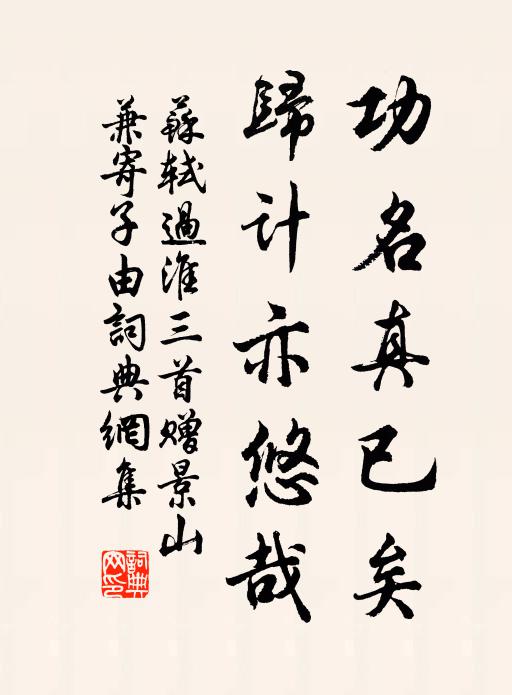 功名真已矣
歸计亦悠哉
蘇軾過淮三首赠景山
兼寄子由詞典網集
詞典
网印